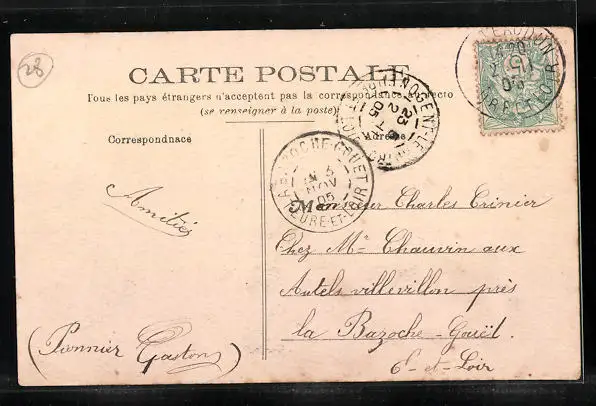 28
CARTE POSTALE
Tous les pays étrangers n'acceptent pas la correspondance au recto
(se renseigner à la poste)
Correspondnace
Adresse
NOGENT-LE
23
05
LA BAZOCHE-GOUET
NOV
05
EURE-ET-LOIR
Amitiés
Monsieur Charles Crinier
Chez Mr Chauvin aux
Autels villevillon près
la Bazoche-Gouët
E-et-Loir
(Pionnier Gaston)